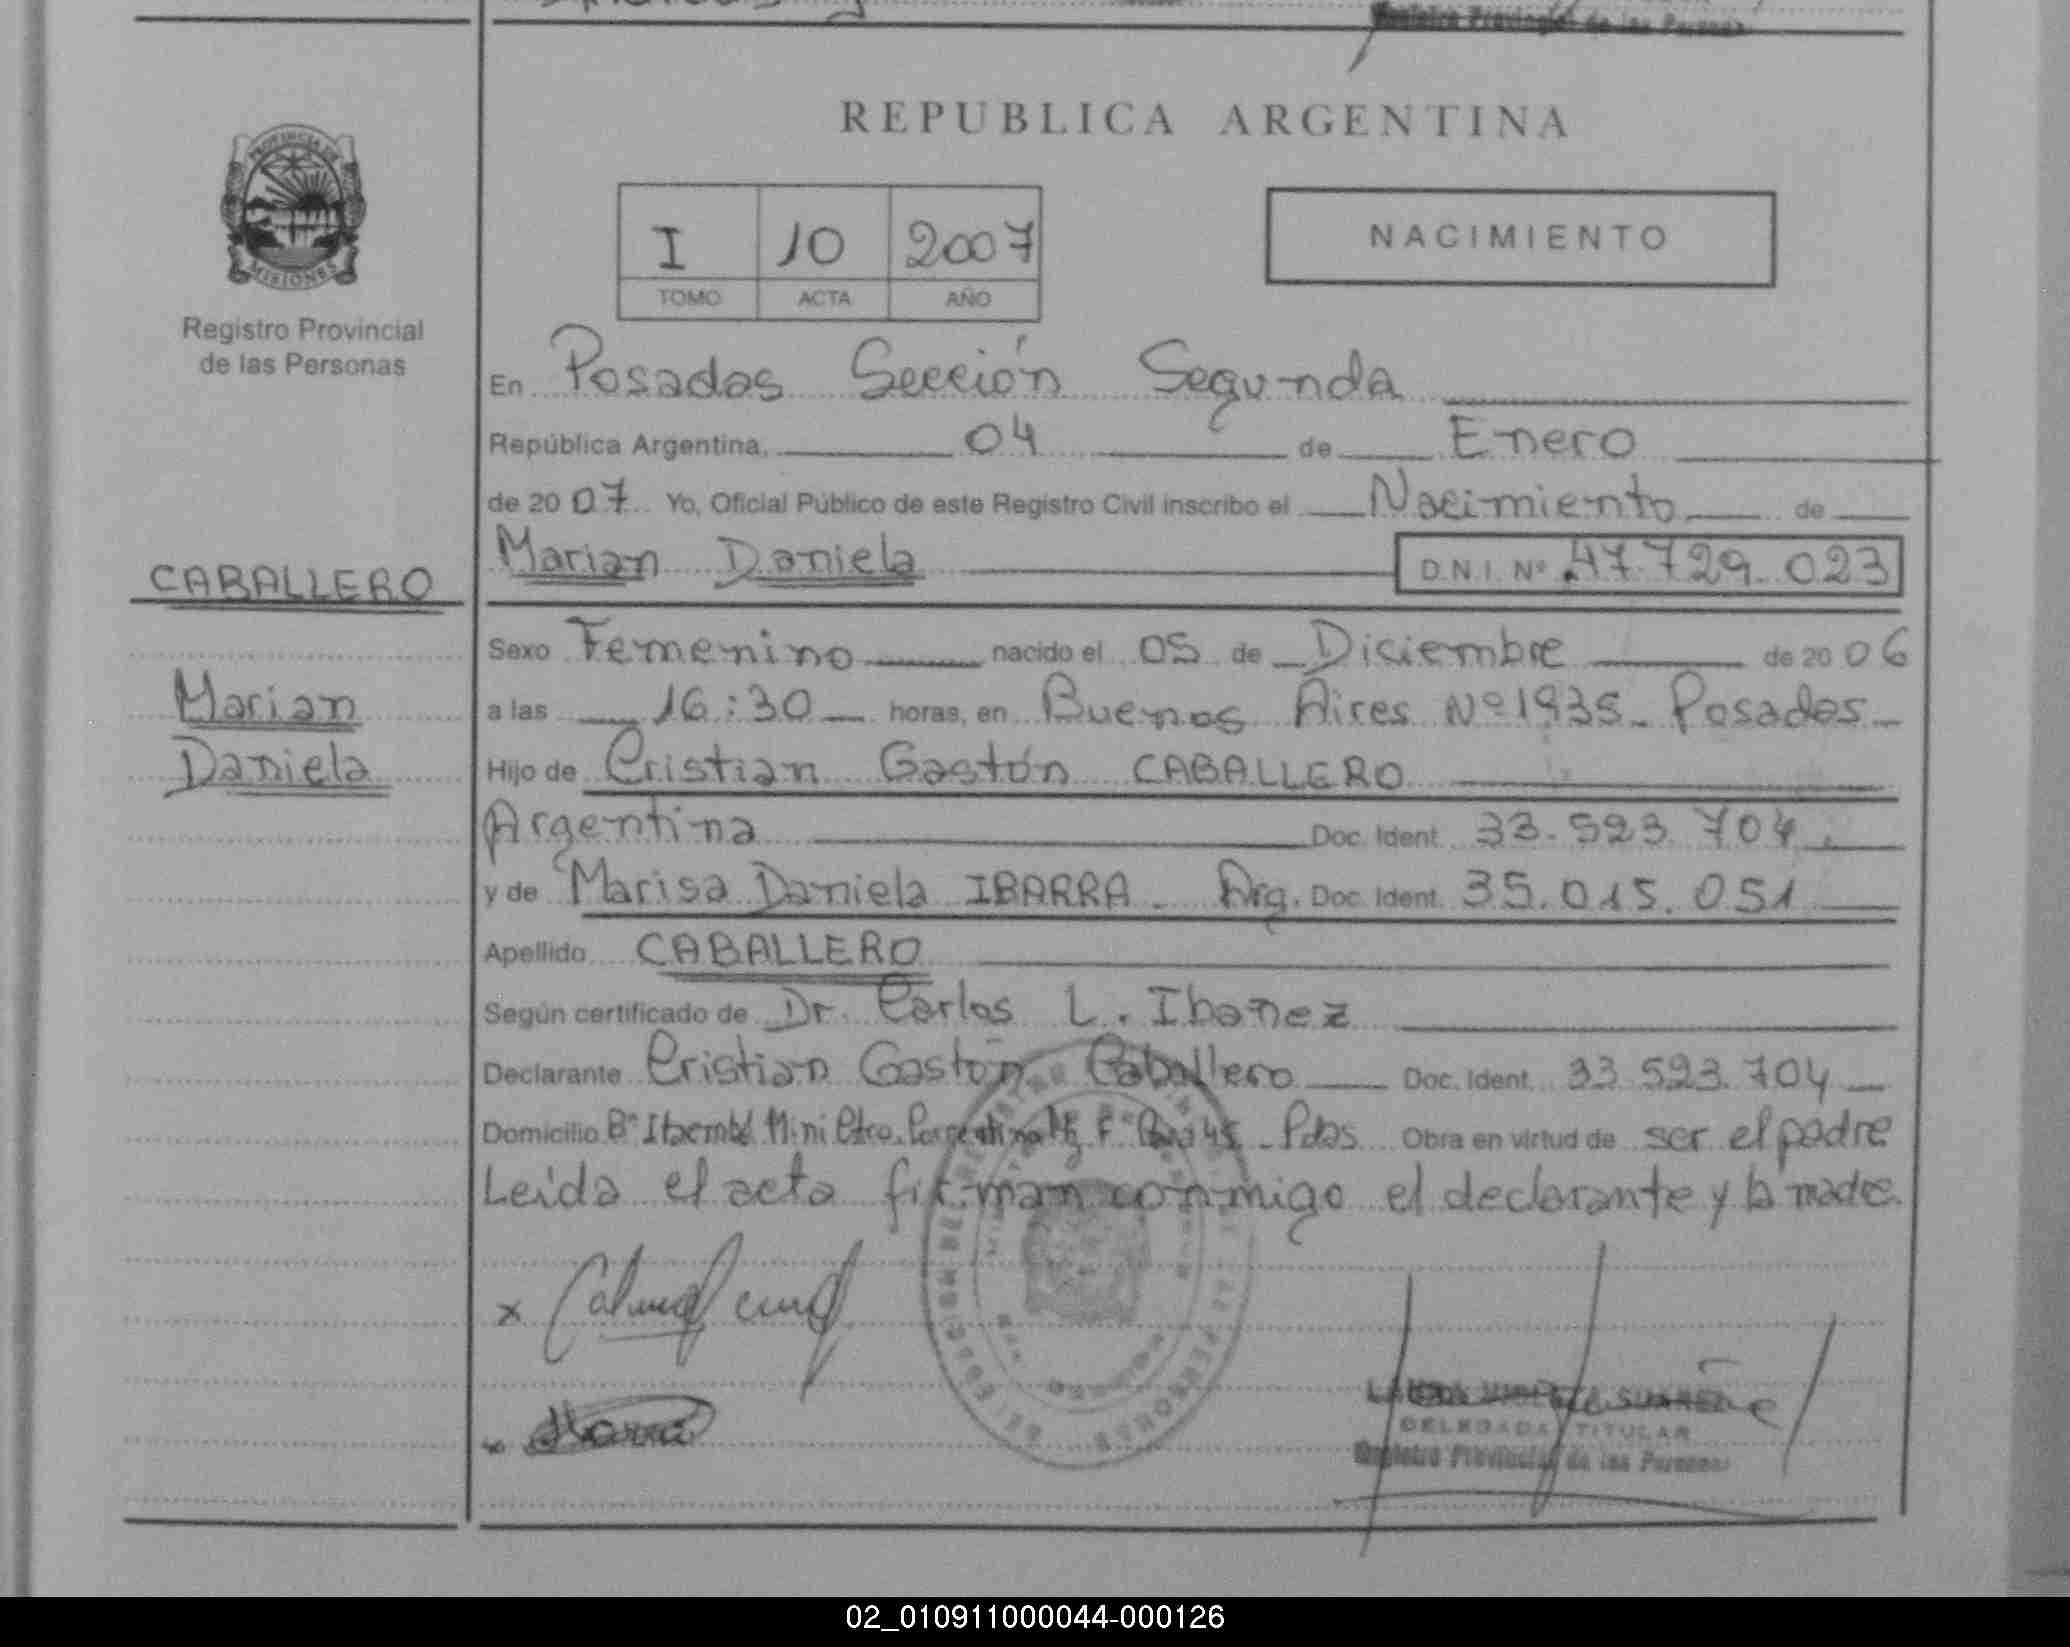 REPUBLICA ARGENTINA
PROVINCIA DE
MISIONES
Registro Provincial
de las Personas
I 10 2007
TOMO ACTA AÑO
NACIMIENTO
En Posadas Sección Segunda
República Argentina, 04 de Enero
de 20 07 Yo, Oficial Público de este Registro Civil inscribo el Nacimiento de
Marian Daniela D.N.I. Nº 47.729.023
CABALLERO
Marian
Daniela
Sexo Femenino nacido el 05 de Diciembre de 20 06
a las 16:30 horas, en Buenos Aires Nº 1935 - Posadas -
Hijo de Cristian Gastón CABALLERO
Argentina Doc. Ident. 33.523.704
y de Marisa Daniela IBARRA - Arg. Doc. Ident. 35.015.051
Apellido CABALLERO
Según certificado de Dr. Carlos L. Ibañez
Declarante Cristian Gastón Caballero Doc. Ident. 33.523.704
Domicilio Bº Itaembé Mini Mz F - Pdas Obra en virtud de ser el padre
Leida el acta firman conmigo el declarante y la madre.
x
x
DELEGADA TITULAR
Registro Provincial de las Personas
02_010911000044-000126